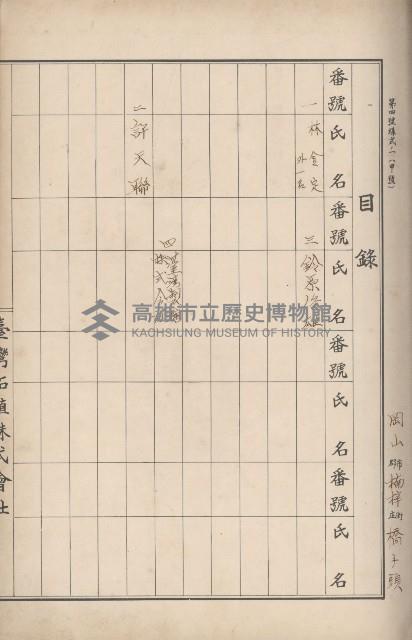 第四號樣式ノ一(甲號)
岡山 市郡 楠梓 街庄 橋子頭
目錄
番號 氏名 番號 氏名 番號 氏名 番號 氏名
一 林金定 外一名
三 鈴原
二 許天聯
四 臺灣製糖 株式會社
高雄市立歷史博物館
KAOHSIUNG MUSEUM OF HISTORY
臺灣石殖株式會社